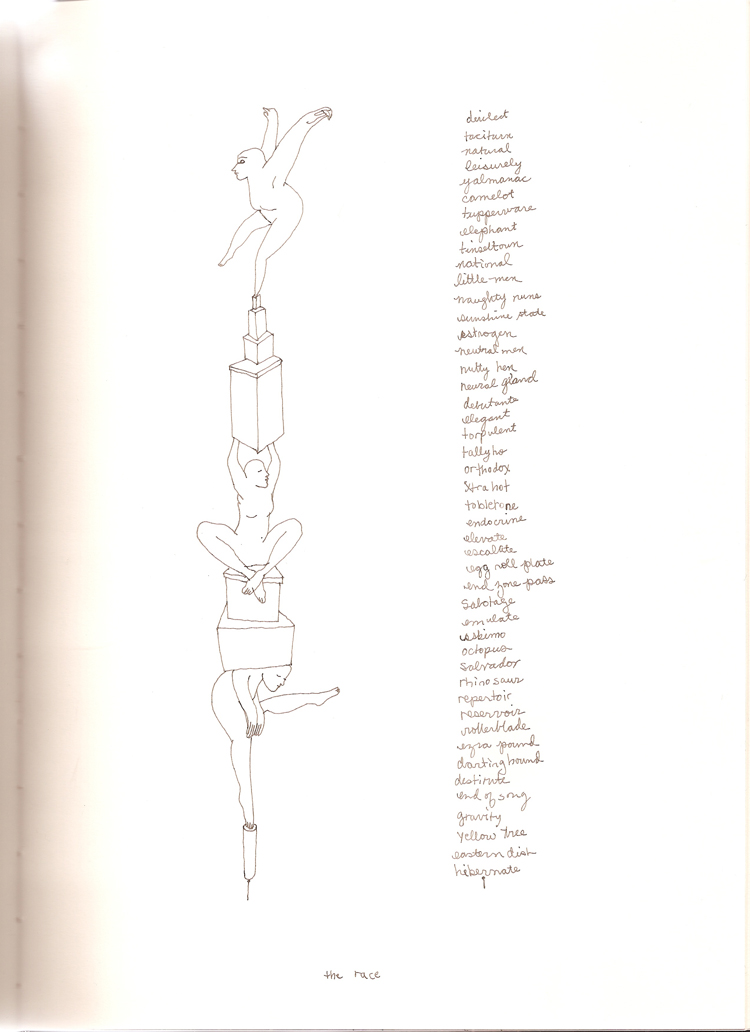 derilect
taciturn
natural
leisurely
yalmanac
camelot
tupperware
elephant
tinseltown
national
little men
naughty nuns
sunshine state
estrogen
neutral men
nutty hen
neural gland
debutante
elegant
torpulent
tallyho
orthodox
Xtra hot
toblerone
endocrine
elevate
escalate
egg roll plate
end zone pass
Sabotage
emulate
eskimo
octopus
Salvador
rhinosaur
repertoir
reservoir
rollerblade
ezra pound
darting hound
destitute
end of song
gravity
Yellow Tree
eastern dish
hibernate
the race